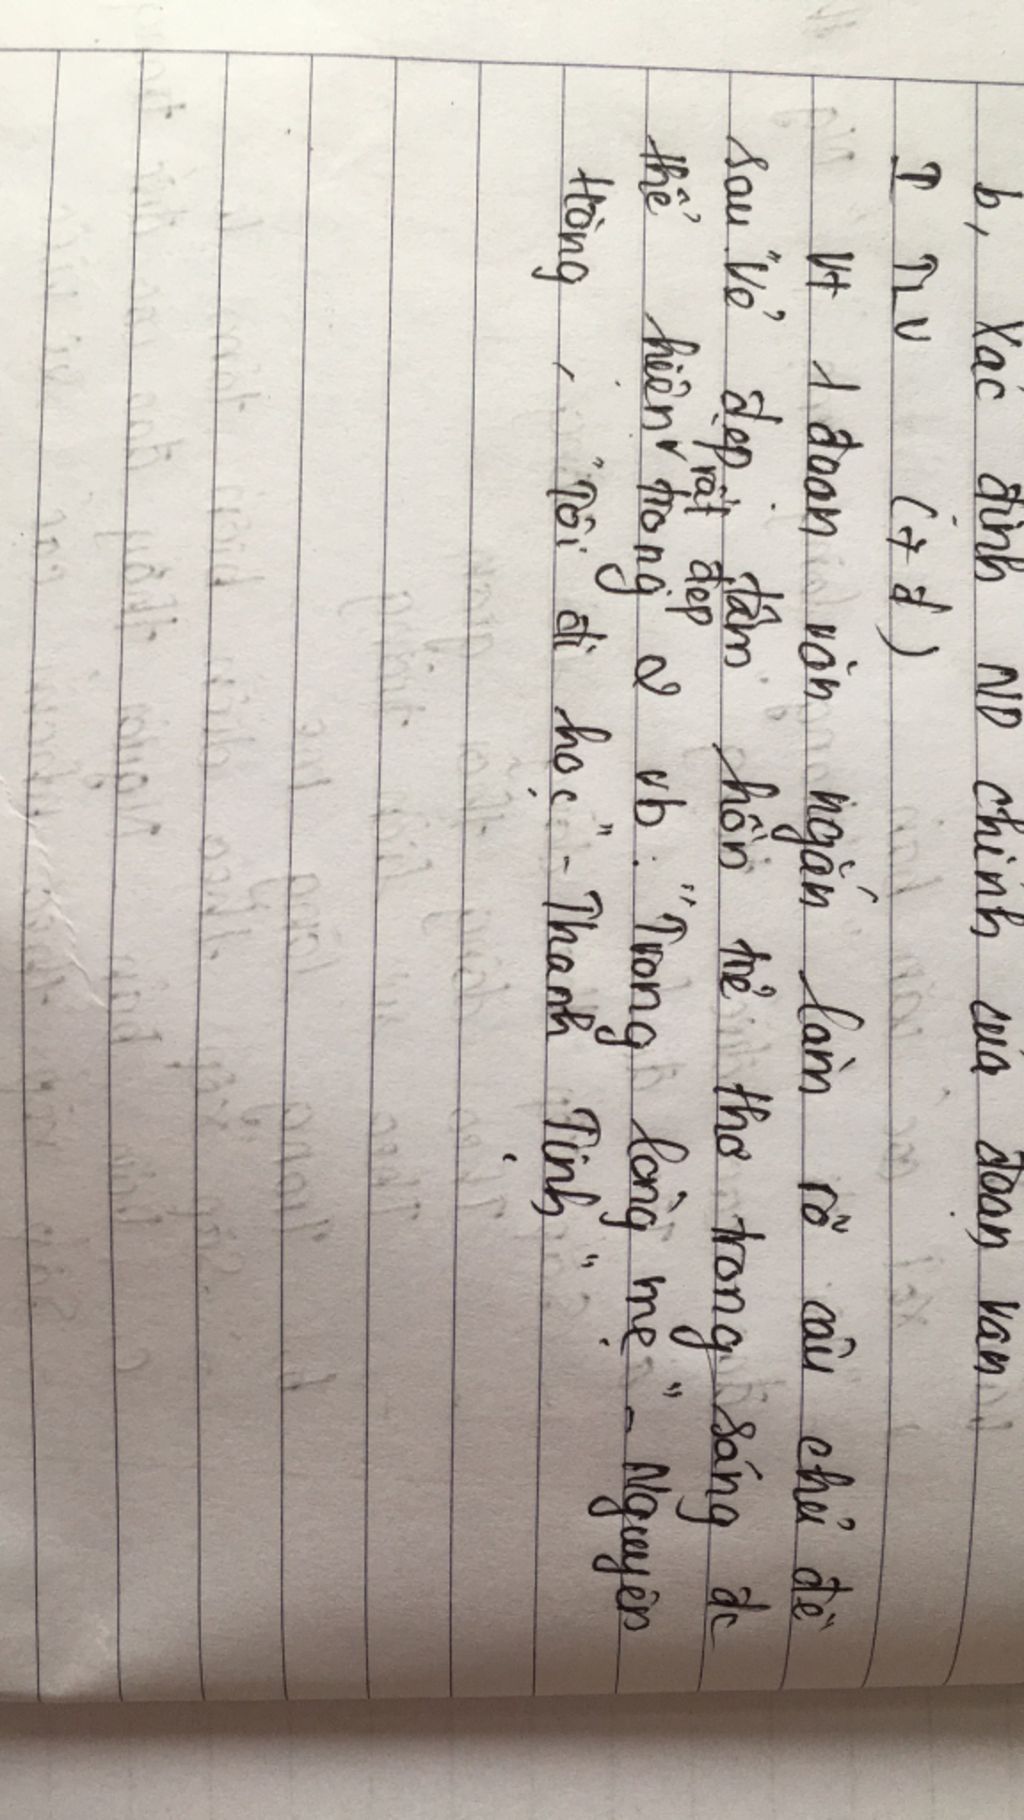 b, Xác định ND chính của đoạn văn
II TLV (7đ)
Vt 1 đoạn văn ngắn làm rõ câu chủ đề
sau "Vẻ đẹp tâm hồn trẻ thơ trong sáng đc
rất đẹp
thể hiện trong 2 vb: "Trong lòng mẹ" - Nguyên
Hồng, "Tôi đi học" - Thanh Tịnh"